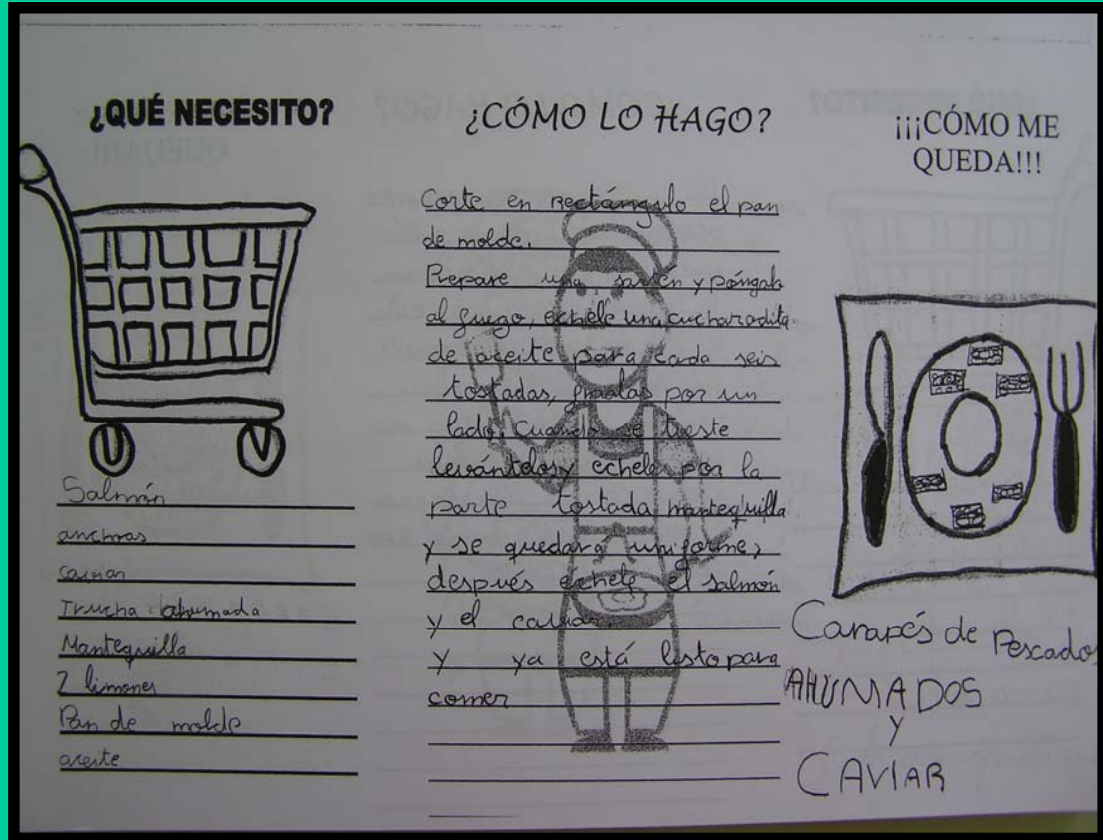 ¿QUÉ NECESITO?
Salmón
anchoas
caviar
Trucha ahumada
Mantequilla
2 limones
Pan de molde
aceite
¿CÓMO LO HAGO?
Corte en rectángulo el pan
de molde.
Prepare una sartén y póngala
al fuego, echele una cucharadita
de aceite para cada seis
tostadas, por un
lado. Cuando se tueste
levántelos y echele por la
parte tostada mantequilla
y se quedará uniforme,
después échele el salmón
y el caviar.
Y ya está listo para
comer
¡¡¡CÓMO ME
QUEDA!!!
Canapés de Pescados
AHUMADOS
Y
CAVIAR